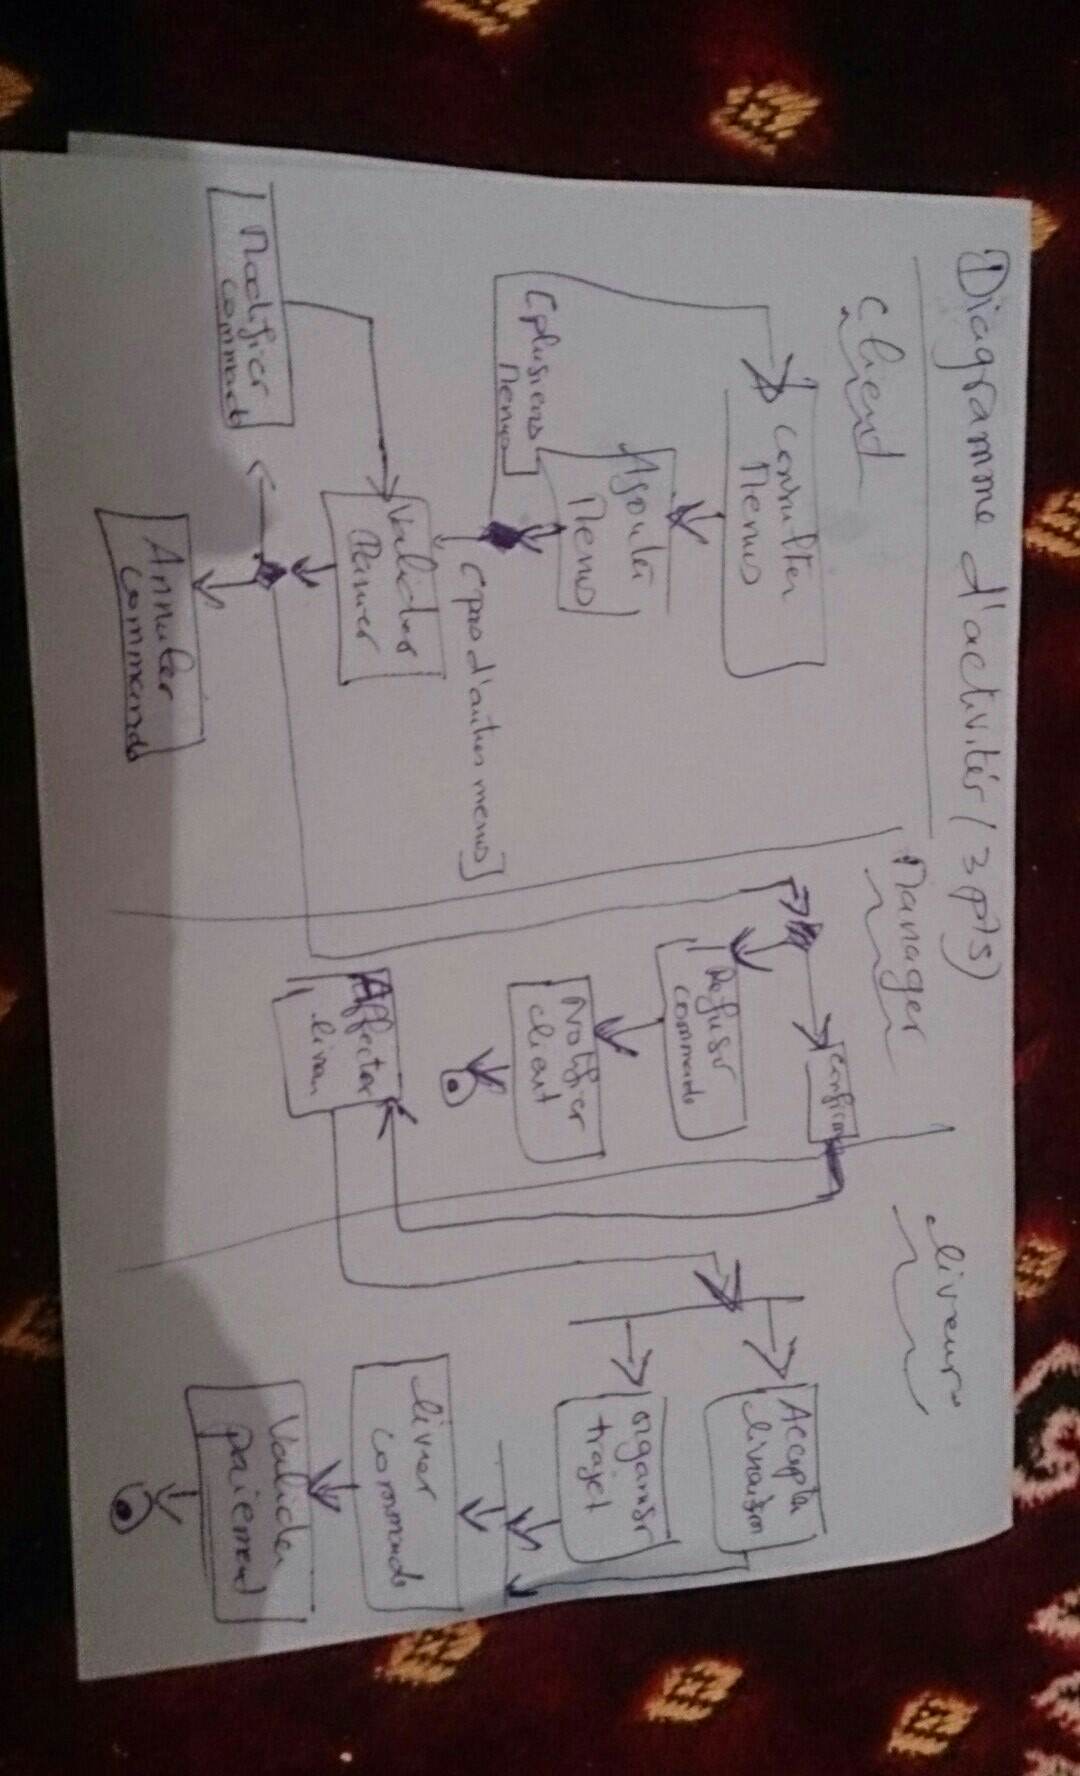 Diagramme d'activités (3 pts)
Client
Manager
livreur
Consulter
Menus
Ajouter
Menus
[plusieurs
Menus]
[pas d'autres menus]
Valider
Panier
Modifier
commande
Annuler
commande
Confirmer
Refuser
commande
Notifier
client
Affecter
livreur
Accepter
livraison
organiser
trajet
livrer
commande
Valider
paiement